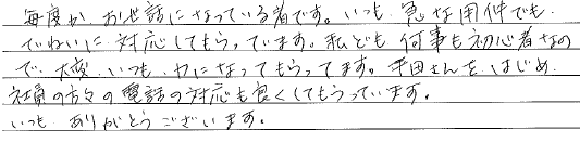 毎度か お世話になっている者です。いつも 急な用件でも
ていねいに 対応してもらっています。私ども 何事も初心者なの
で、大変 いつも 力になってもらってます。半田さんを はじめ
社員の方々の 電話の対応も良くしてもらっています。
いつも ありがとうございます。